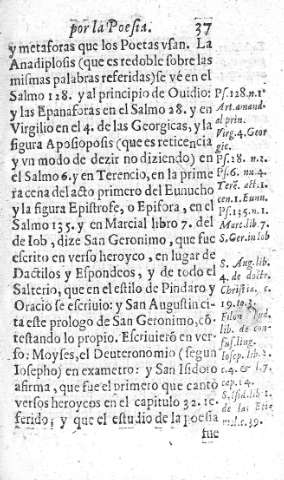 por la Poesia. 37
y metaforas que los Poetas vsan. La
Anadiplosis (que es redoble sobre las
mismas palabras referidas) se vé en el
Salmo 128. y al principio de Ouidio:
y las Epanaforas en el Salmo 28. y en
Virgilio en el 4. de las Georgicas, y la
figura Aposioposis (que es reticencia
y vn modo de dezir no diziendo) en
el Salmo 6. y en Terencio, en la prime
ra cena del acto primero del Eunucho
y la figura Epistrofe, o Epifora, en el
Salmo 135. y en Marcial libro 7. del
de Iob, dize San Geronimo, que fue
escrito en verso heroyco, en lugar de
Dactilos y Espondeos, y de todo el
Salterio, que en el estilo de Pindaro y
Oracio se escriuio: y San Augustin ci
ta este prologo de San Geronimo, cõ
testando lo propio. Escriuierõ en ver
so: Moyses, el Deuteronomio (segun
Iosepho) en exametro: y San Isidoro
afirma, que fue el primero que cantò
versos heroycos en el capitulo 32. re
ferido; y que el estudio de la poesia
fue
Ps. 128. n. 1
Art. amand-
al prin.
Virg. 4. Geor
gic.
Ps. 28. n. 2.
Ps. 6. nu. 4.
Terē. act. 1.
cen. 1. Eunu.
Ps. 135. n. 1.
Marc. lib. 7
S. Ger. in Iob
S. Aug. lib.
4. de doctr.
Christia. c.
Filon Iud.
lib. de con-
Iosep. lib. 2.
c. 4. & l. 7.
cap. 14.
S. Isid. lib. 1
de las Etim.
c. 39.